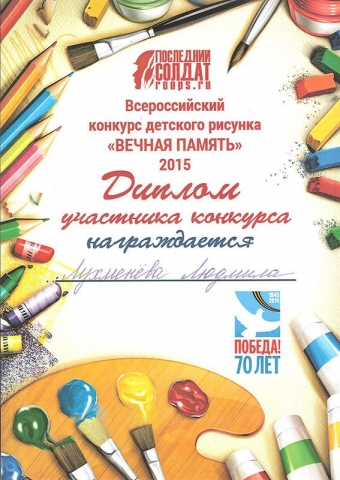 ПОСЛЕДНИЙ
СОЛДАТ
roops.ru
Всероссийский
конкурс детского рисунка
«ВЕЧНАЯ ПАМЯТЬ»
2015
Диплом
участника конкурса
награждается
Лухменёва Людмила
1945
2015
ПОБЕДА!
70 ЛЕТ